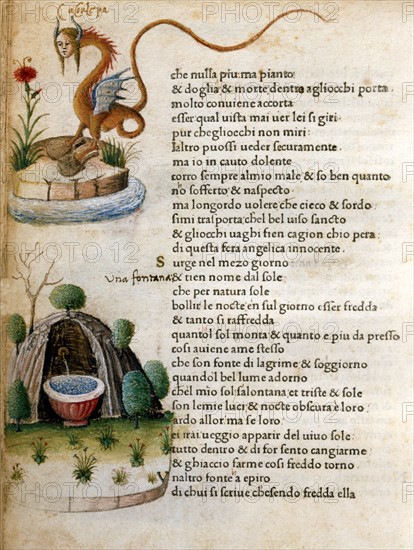 Casulepa
che nulla piu ma pianto
& doglia & morte dentro agliocchi porta
molto conuiene accorta
esser qual uista mai uer lei si giri
pur chegliocchi non miri
laltro puossi ueder securamente
ma io in cauto dolente
corro sempre almio male & so ben quanto
no sofferto & naspecto
ma longordo uolere che cieco & sordo
simi trasporta chel bel uiso sancto
& gliocchi uaghi fien cagion chio pera
di questa fera angelica innocente
S urge nel mezo giorno
Una fontana & tien nome dal sole
che per natura sole
bollir le nocte en sul giorno esser fredda
& tanto si raffredda
quantol sol monta & quanto e piu da presso
cosi auiene ame stesso
che son fonte di lagrime & soggiorno
quandol bel lume adorno
chel mio sol salontana et triste & sole
son le mie luci & nocte obscura e loro
ardo allor ma se loro
et rai ueggio apparir del uiuo sole
tutto dentro & di for sento cangiarme
& ghiaccio farme cosi freddo torno
naltro fonte a epiro
di chui si scriue chesendo fredda ella